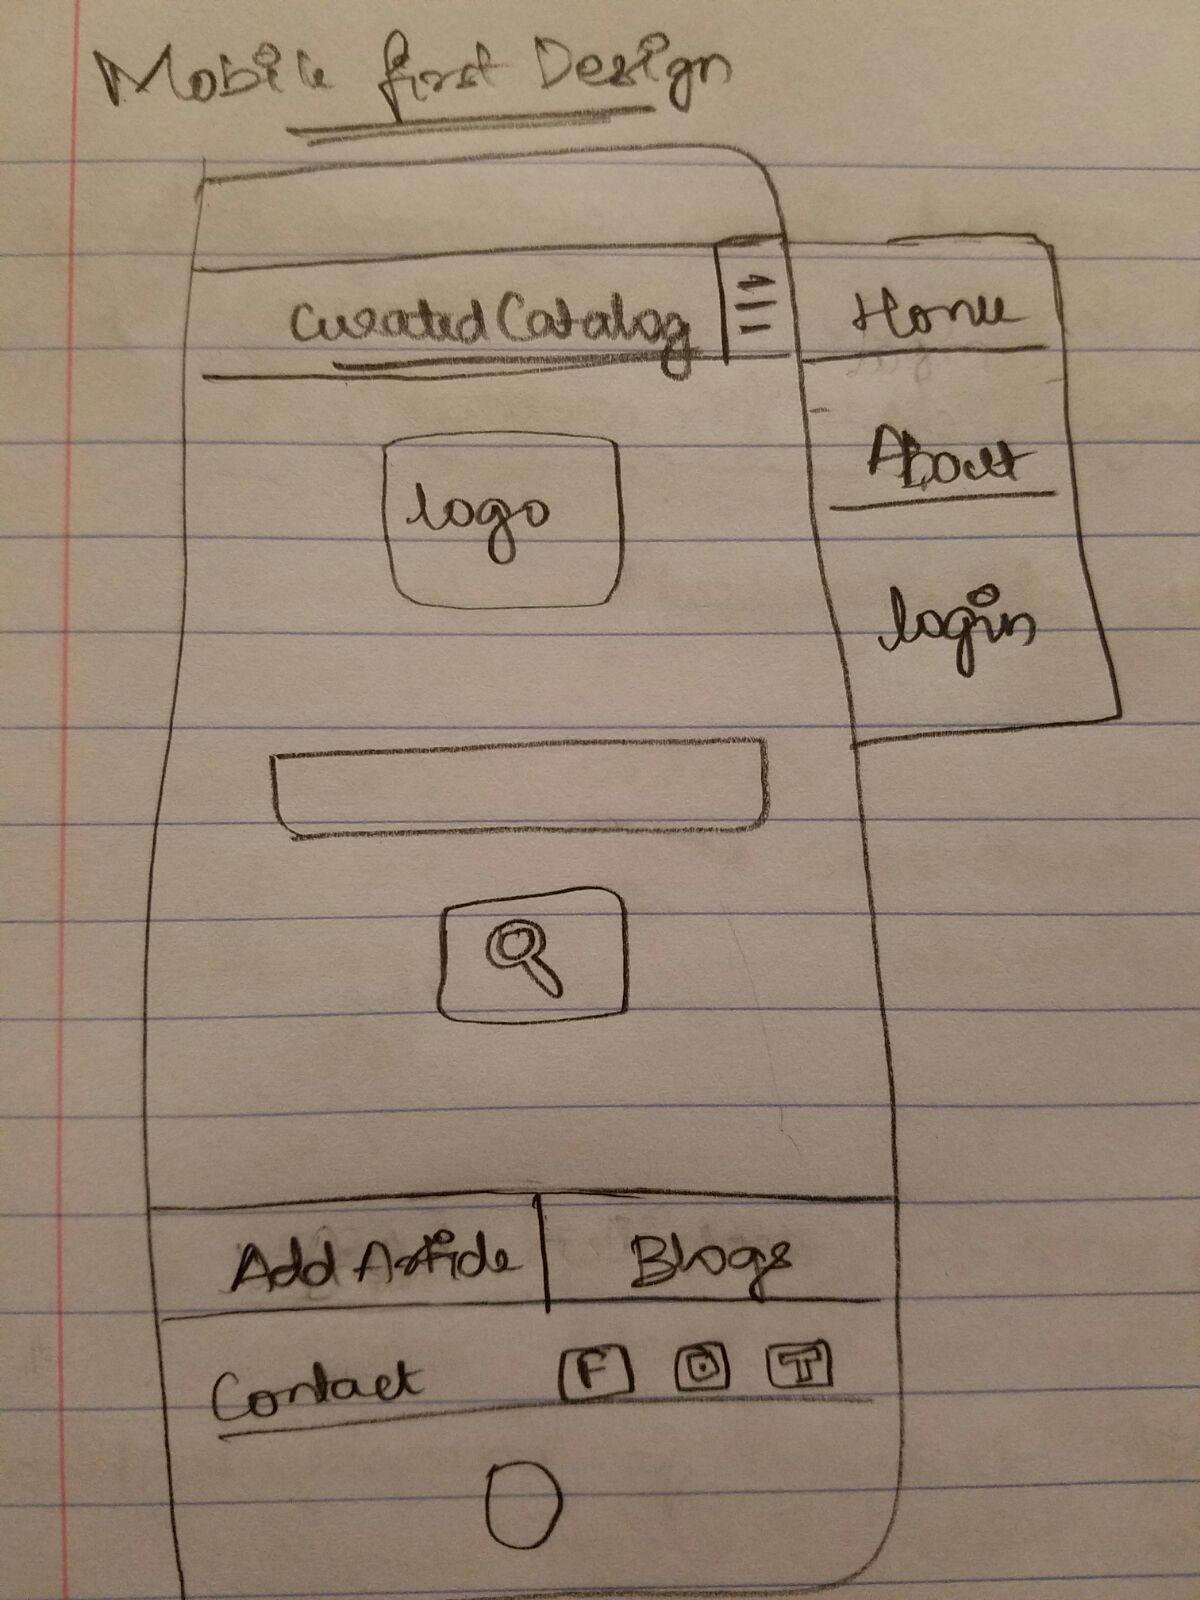 Mobile first Design
Curated Catalog
Home
About
login
logo
Add Article
Blogs
Contact F T